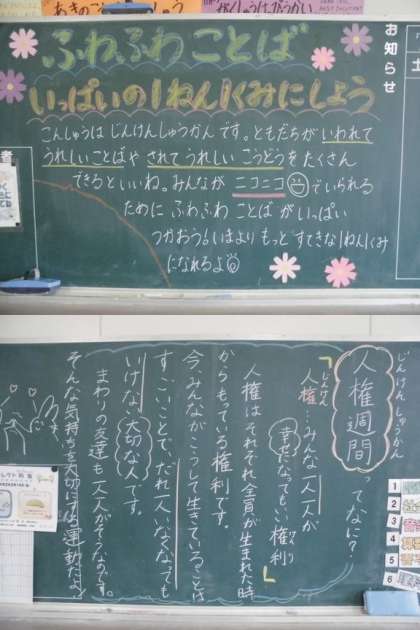 あきの
お知らせ
ふわふわことば
いっぱいの1ねん1くみにしよう
こんしゅうは じんけんしゅうかん です。ともだちが いわれて
うれしいことばや されて うれしい こうどうを たくさん
できるといいね。みんなが ニコニコ でいられる
ために ふわふわ ことば が いっぱい
つかおう。いまより もっと すてきな 1ねん1くみ
になれるよ
じんけん しゅうかん
人権週間ってなに?
じんけん
人権…みんな一人一人が
幸せになってもいい権利
人権はそれぞれ全員が生まれた時
からもっている権利です。
今、みんながこうして生きていることは
すごいことで、だれ一人いなくなっても
いけない大切な人です。
まわりの友達も一人一人がそうなのです。
そんな気持ちを大切にする運動だよ
1
2
3
4
5
6